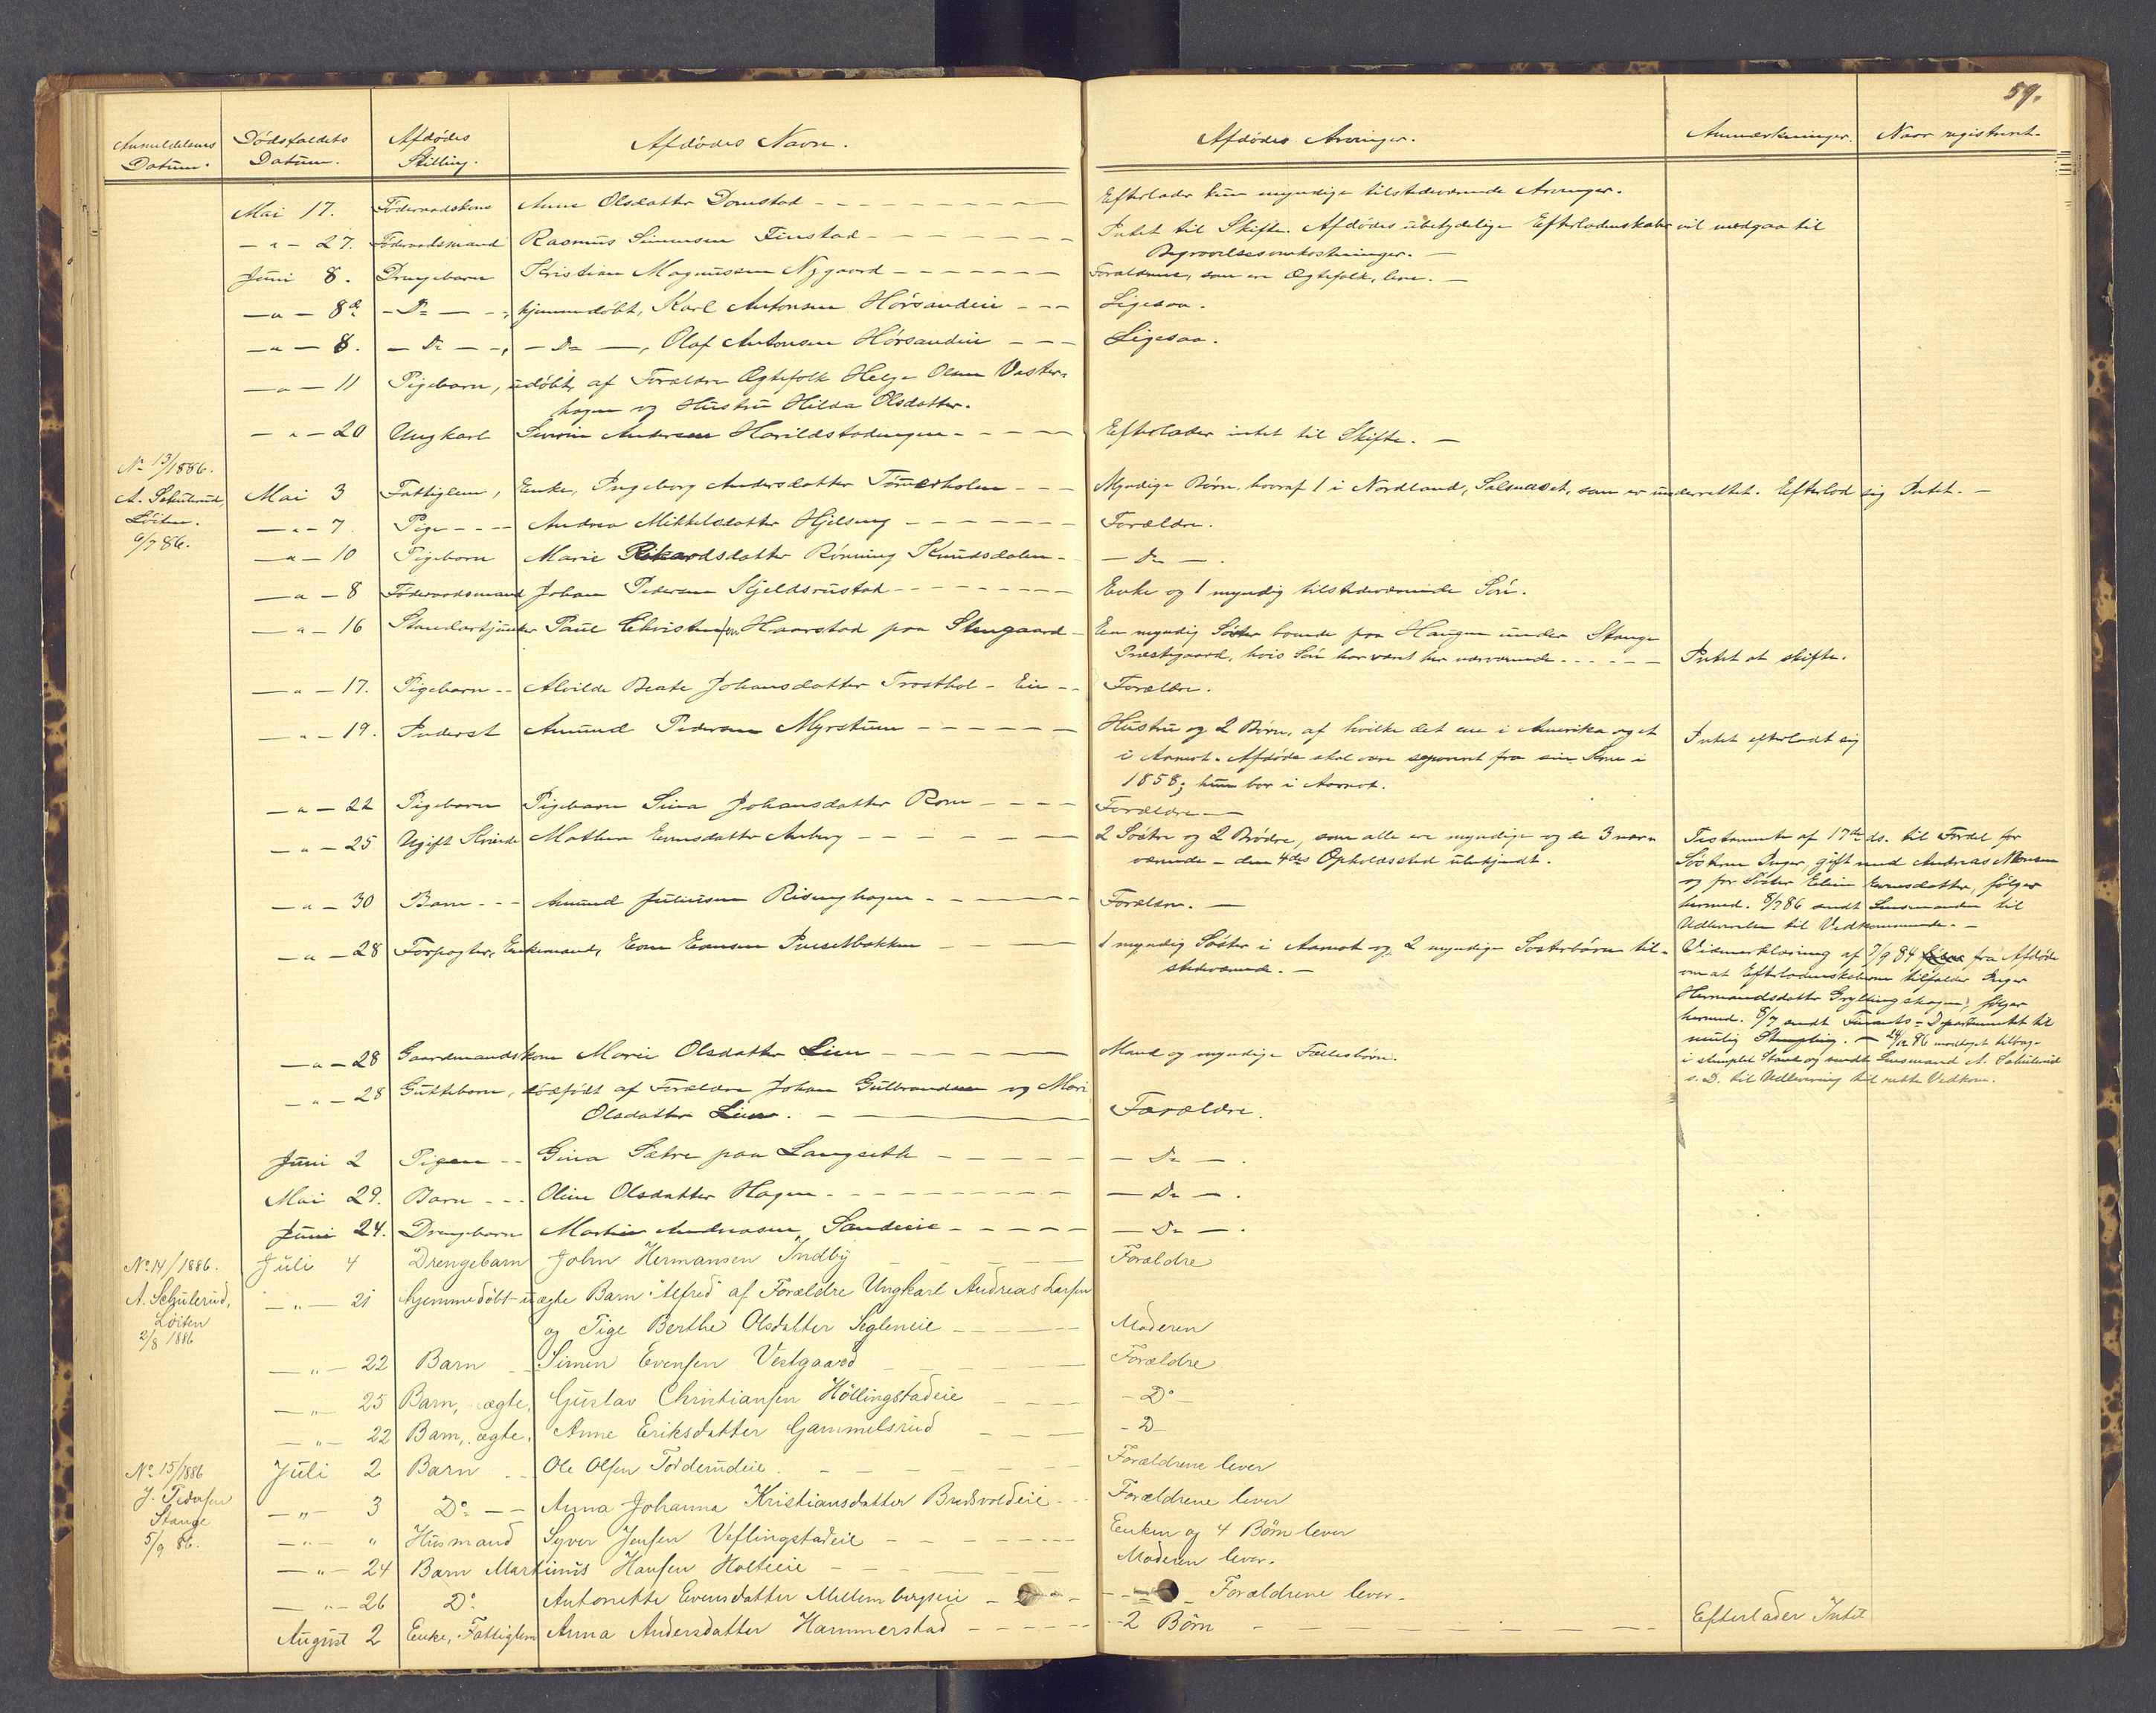 59.
Anmeldelsens Datum. Dødsfaldets Datum. Afdødes Stilling. Afdødes Navn. Afdødes Arvinger. Anmærkninger. Naar registreret.
Mai 17. Føderaadskone Anne Olsdatter Domstad Efterlader kun myndige tilstedeværende Arvinger.
- " - 27. Føderaadsmand Rasmus Simensen Finstad Intet til Skifte. Afdødes ubetydelige Efterladenskaber vil medgaa til
Begravelsesomkostninger. -
Juni 8. Drengebarn Kristian Magnussen Nygaard Forældrene, som ere Ægtefolk, leve. -
- " - 8de - Do - hjemmedøbt, Karl Antonsen Hørsandeie Ligesaa.
- " - 8. - Do - , - Do - , Olaf Antonsen Hørsandeie Ligesaa.
- " - 11 Pigebarn, udøbt, af Forældre Ægtefolk Helge Olsen Vester-
hagen og Hustru Hilda Olsdatter.
- " - 20 Ungkarl Andersen Efterlader intet til Skifte. -
No 13/1886.
A. Schulerud, Mai 3 Fattiglem, Enke, Ingeborg Andersdatter Tømmerholen Myndige Børn, hvoraf 1 i Nordland, Salsnæset, som er underrettet. Efterlod sig Intet. -
Løiten. - " - 7 Pige Andrea Mikkelsdatter Hjelseng Forældre.
6/7 86. - " - 10 Pigebarn Marie Rikardsdatter Rønning Knudsdalen - Do - .
- " - 8 Føderaadsmand Johan Pedersen Kjeldsrustad Enke og 1 myndig tilstedeværende Søn.
- " - 16 Standartjunker Paul Christensen Haarstad paa Stengaard Een myndig Søster boende paa Haugen under Stange
Præstegaard, hvis Søn har været her nærværende Intet at skifte.
- " - 17. Pigebarn Alvilde Beate Johansdatter Trosthol - Eie Forældre.
- " - 19. Inderst Amund Pedersen Myrstuen Hustru og 2 Børn, af hvilke det ene i Amerika og et Intet efterladt sig
i Aamot. Afdøde skal være separeret fra sin Kone i
1858; hun bor i Aamot.
- " - 22 Pigebarn Pigebarn Sina Johansdatter Rom Forældre -
- " - 25 Ugift Kvinde Mathea Evensdatter Anberg 2 Søstre og 2 Brødre, som alle ere myndige og de 3 nær- Testamente af 17de ds. til Fordel for
værende - den 4des Opholdssted ubekjendt. Søstrene Inger, gift med Andreas Monsen
og for Søster Eline Evensdatter, følger
- " - 30 Barn Amund Juliussen Risenghagen Forældre. - hermed. 8/7 86 sendt Lensmanden til
Udlevering til Vedkommende. -
- " - 28 Forpagter, Enkemand, Even Evensen Pusetbakken 1 myndig Søster i Aamot og 2 myndige Søsterbørn til- Vidneerklæring af 7/9 84 fra Afdøde
stedeværende. - om at Efterladenskaberne tilfalder Inger
Hermandsdatter Gryllingshagen, følger
hermed. 8/7 sendt Finants-Departementet til
- " - 28 Gaardmandskone Marie Olsdatter Lien Mand og myndige Fællesbørn. mulig Stempling. - 24/12 86 modtaget tilbage
i stemplet Stand og sendt Lensmand A. Schulerud
- " - 28 Guttebarn, dødfødt af Forældre Johan Gulbrandsen og Mari s. D. til Udlevering til rette Vedkom.
Olsdatter Lien. Forældre.
Juni 2 Pigen Gina Sætre paa Langseth - Do - .
Mai 29. Barn Oline Olsdatter Hagen - Do - .
Juni 24. Drengebarn Martin Andreasen Sandeie - Do - .
No 14/1886. Juli 4 Drengebarn John Hermansen Indby Forældre
A. Schulerud, - " - 21 hjemmedøbt uægte Barn "Alfred" af Forældre Ungkarl Andreas Larsen
Løiten og Pige Berthe Olsdatter Segleneie Moderen
2/8 1886
- " - 22 Barn Simen Evensen Vestgaard Forældre
- " - 25 Barn, ægte, Gustav Christiansen Höllingstadeie - Do -
- " - 22 Barn, ægte. Anne Eriksdatter Gammelsrud - D -
No 15/1886 Juli 2 Barn Ole Olsen Torderudeie Forældrene lever
J. Pedersen - " - 3 Do - Anna Johanna Kristiansdatter Bredvoldeie Forældrene lever
Stange - " - " Husmand Syver Jensen Veflingstadeie Enken og 4 Børn lever
5/9 86. - " - 24 Barn Martinus Hansen Holteeie Moderen lever.
- " - 26 Do Antonette Evensdatter Mellembergseie Forældrene lever.
August 2 Enke, Fattiglem Anna Andersdatter Hammerstad 2 Børn Efterlader Intet